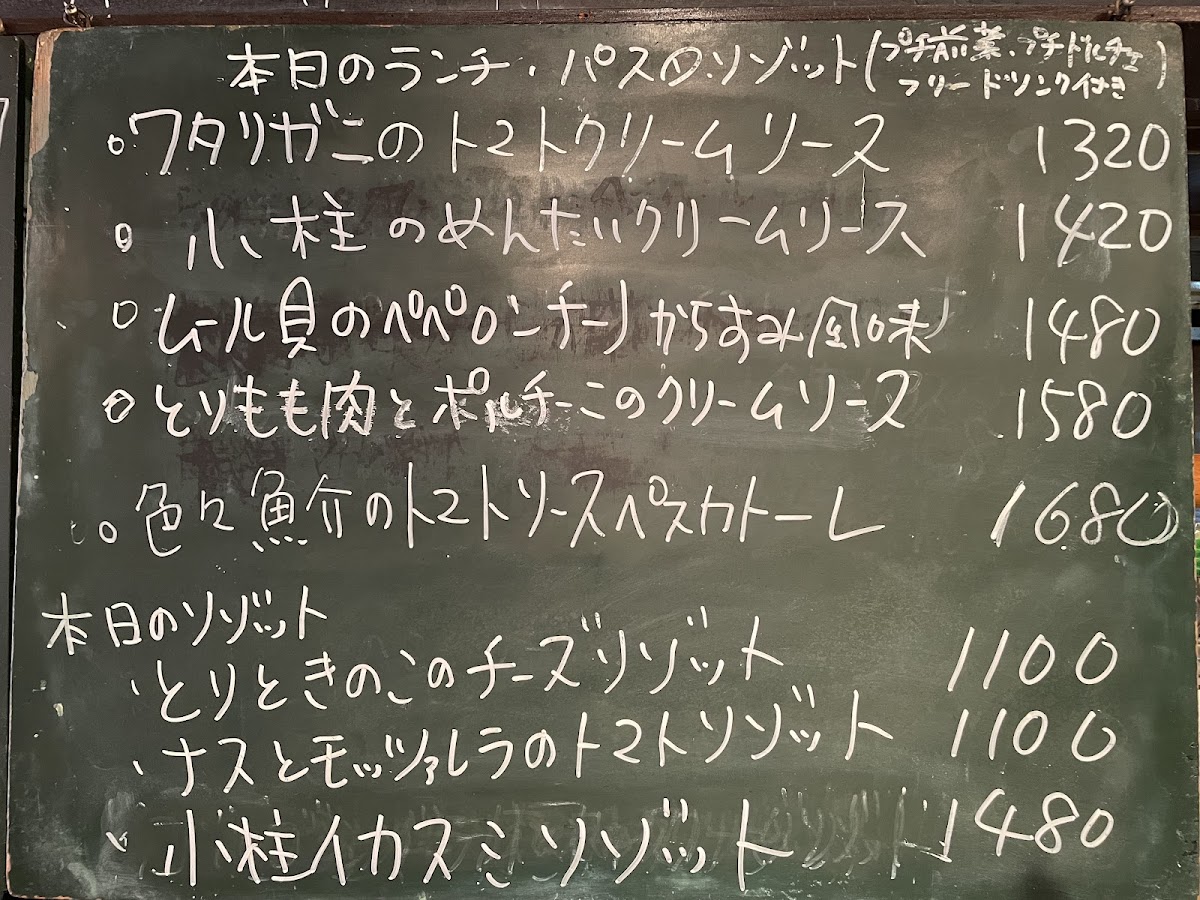 本日のランチ・パスタ・リゾット(プチ前菜、プチドルチェ
フリードリンク付き)
○ワタリガニのトマトクリームソース 1320
○小柱のめんたいクリームソース 1420
○ムール貝のペペロンチーノからすみ風味 1480
○とりもも肉とポルチーニのクリームソース 1580
○色々魚介のトマトソースペスカトーレ 1680
本日のリゾット
・とりときのこのチーズリゾット 1100
・ナスとモッツァレラのトマトリゾット 1100
・小柱イカスミリゾット 1480